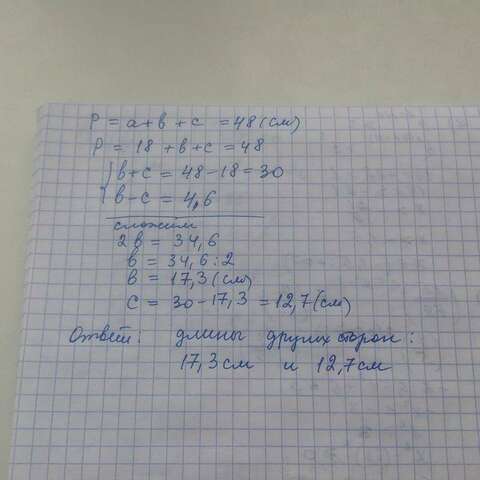 P = a + b + c = 48 (см)
P = 18 + b + c = 48
{ b + c = 48 - 18 = 30
b - c = 4,6
сложим
2b = 34,6
b = 34,6 : 2
b = 17,3 (см)
c = 30 - 17,3 = 12,7 (см)
Ответ: длины других сторон:
17,3 см и 12,7 см